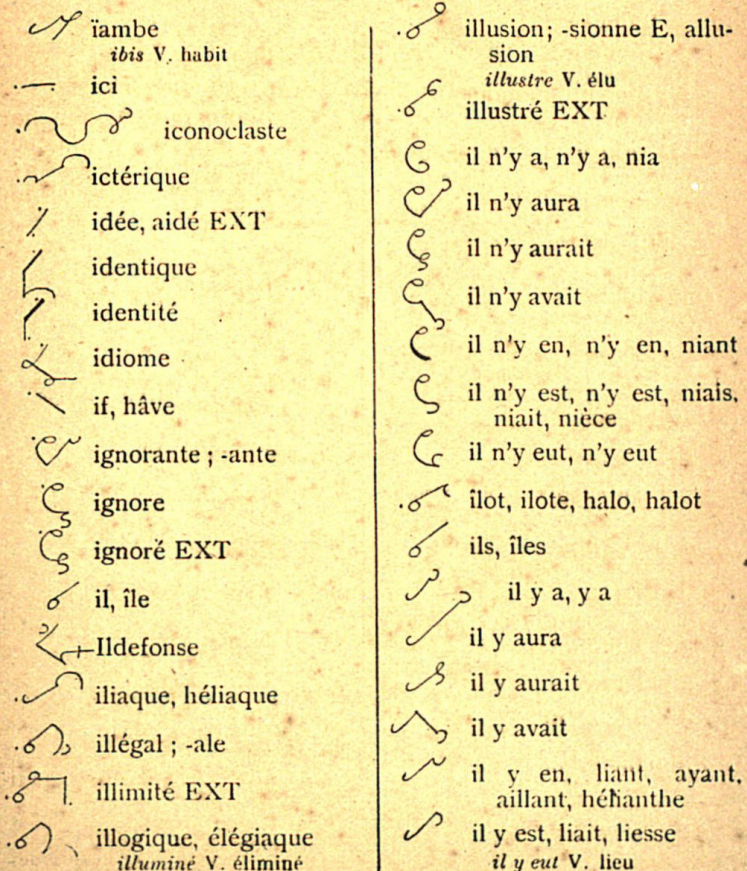 ïambe
ibis V. habit
ici
iconoclaste
ictérique
idée, aidé EXT
identique
identité
idiome
if, hâve
ignorante ; -ante
ignore
ignoré EXT
il, île
Ildefonse
iliaque, héliaque
illégal ; -ale
illimité EXT
illogique, élégiaque
illuminé V. éliminé
illusion; -sionne E, allu-
sion
illustre V. élu
illustré EXT
il n'y a, n'y a, nia
il n'y aura
il n'y aurait
il n'y avait
il n'y en, n'y en, niant
il n'y est, n'y est, niais,
niait, nièce
il n'y eut, n'y eut
îlot, ilote, halo, halot
ils, îles
il y a, y a
il y aura
il y aurait
il y avait
il y en, liant, ayant,
aillant, hélianthe
il y est, liait, liesse
il y eut V. lieu